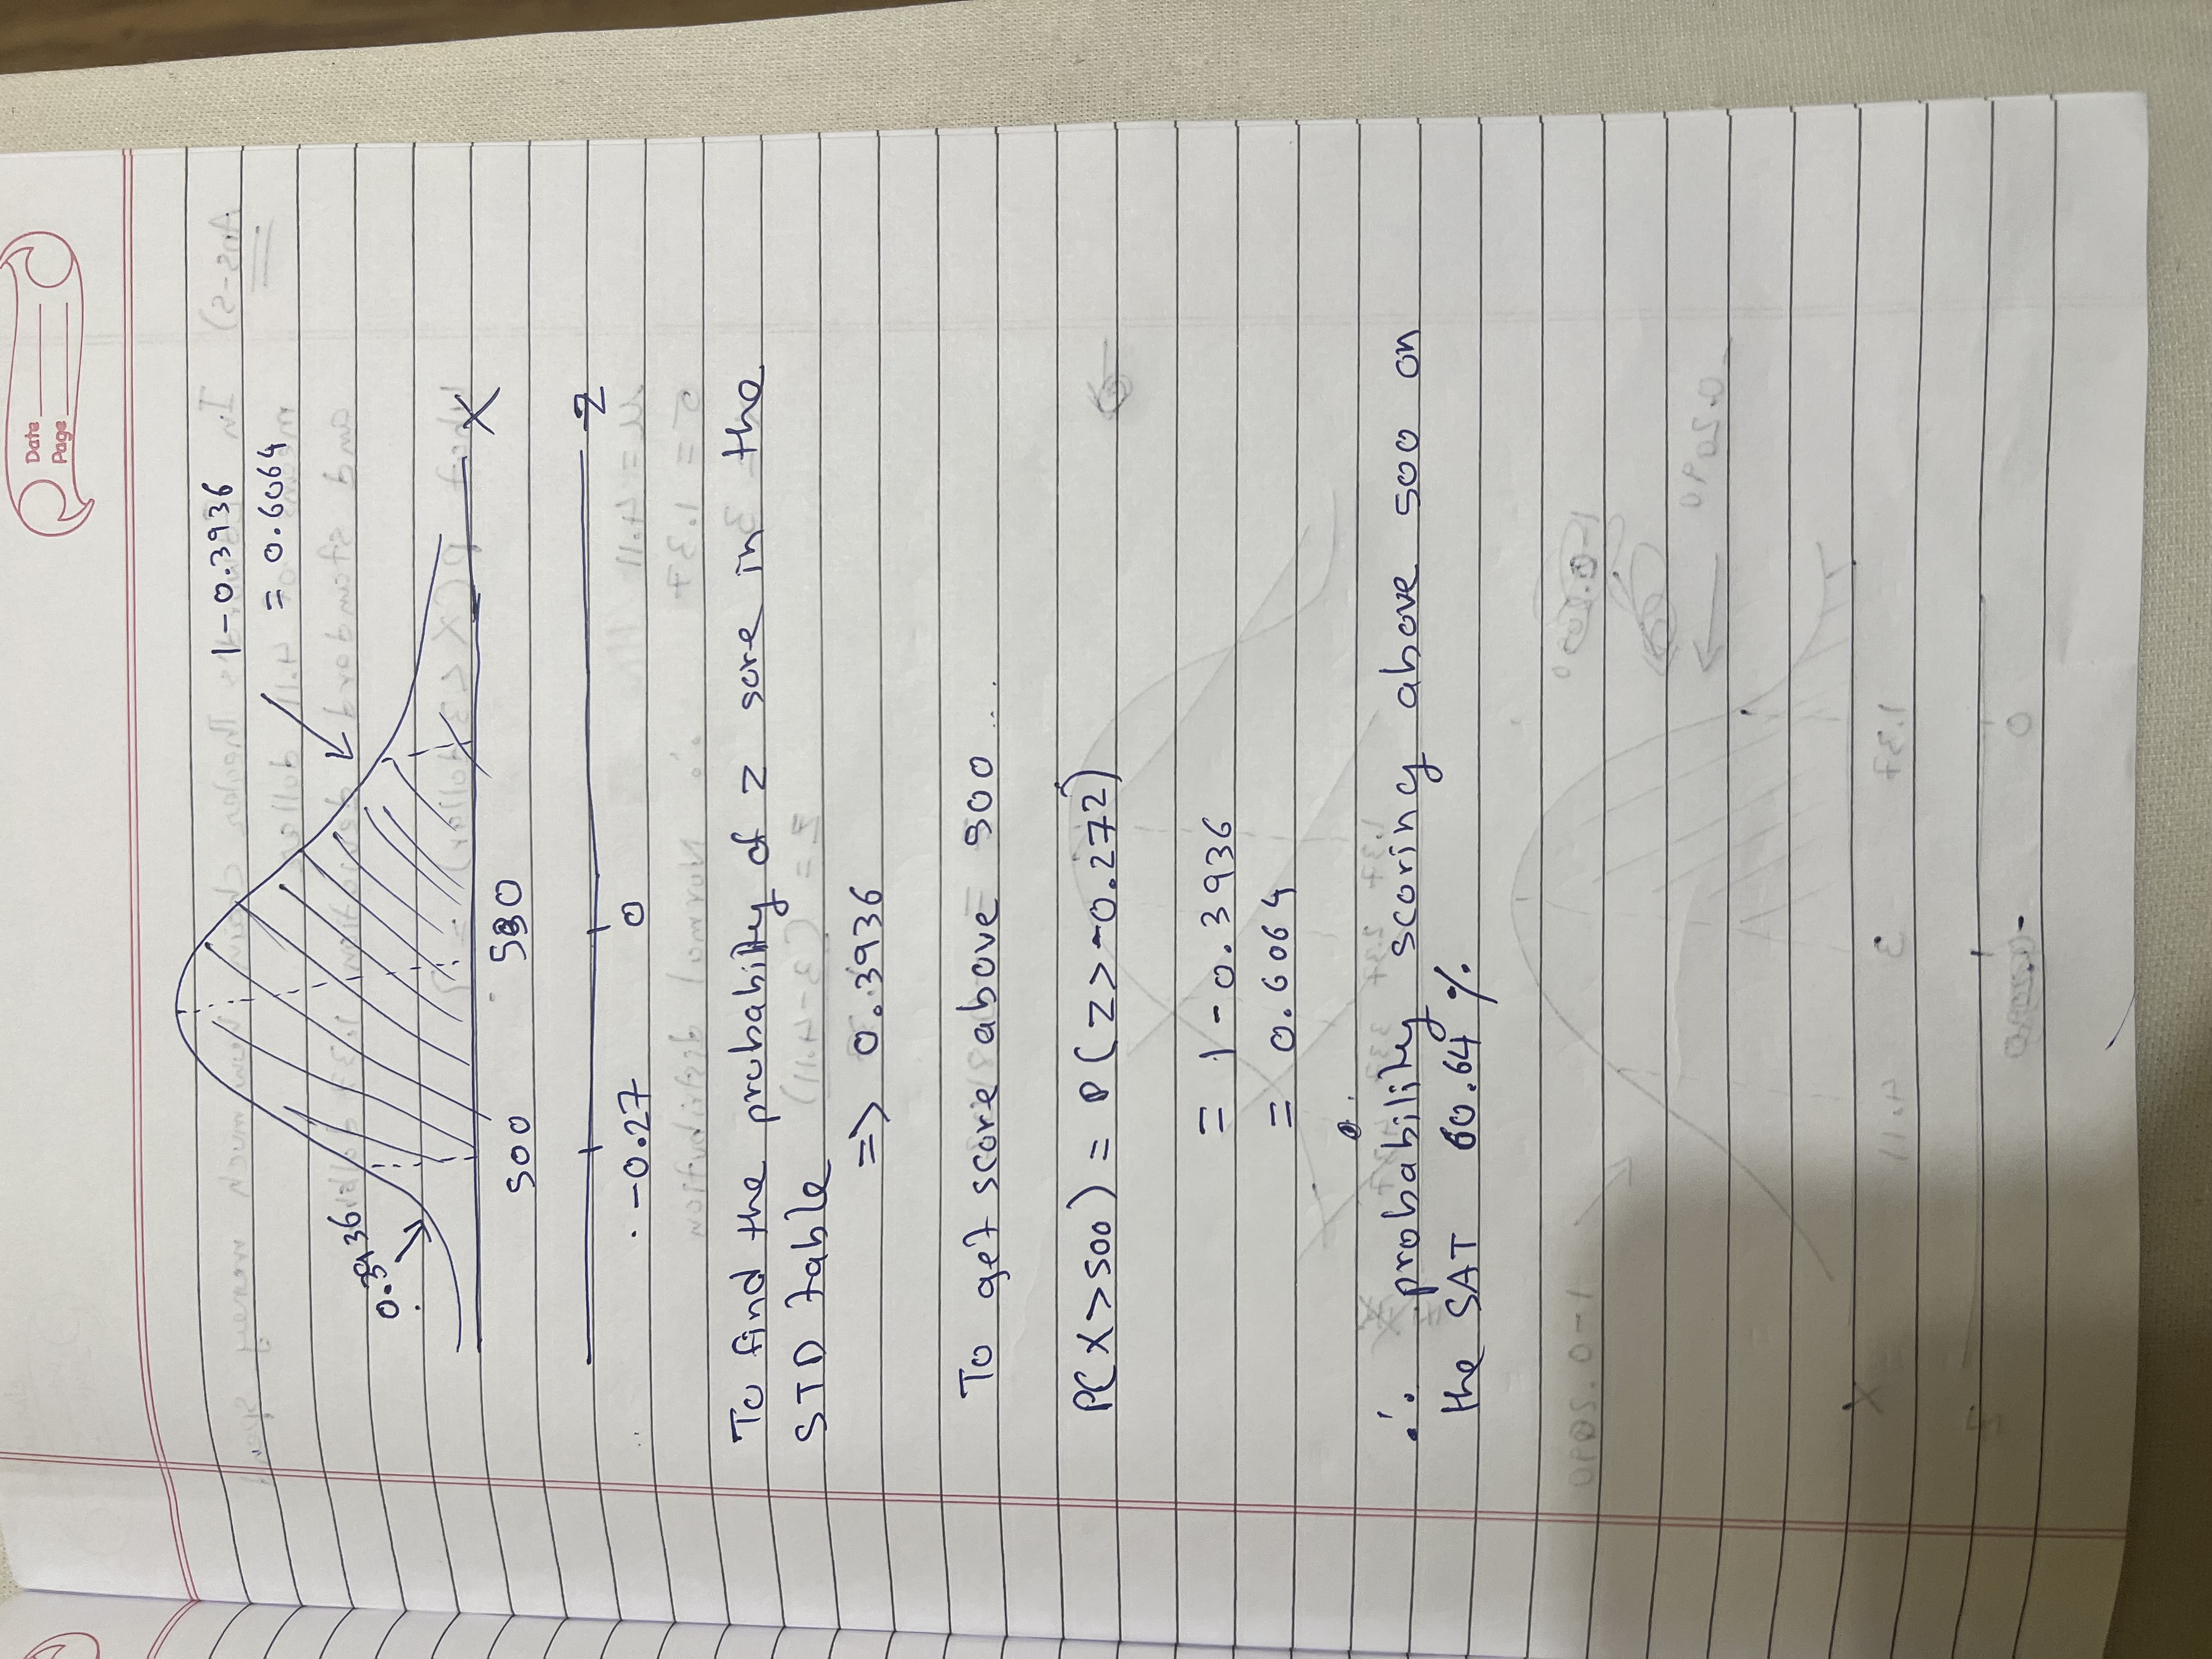 Date
Page
1-0.3936
= 0.6064
0.3936
X
500 530
Z
-0.27 0
To find the probability of z sore in the
STD table
=> 0.3936
To get score above 500 ...
P(X>500) = P(Z>-0.272)
= 1-0.3936
= 0.6064
∴ probability scoring above 500 on
the SAT 60.64 %.